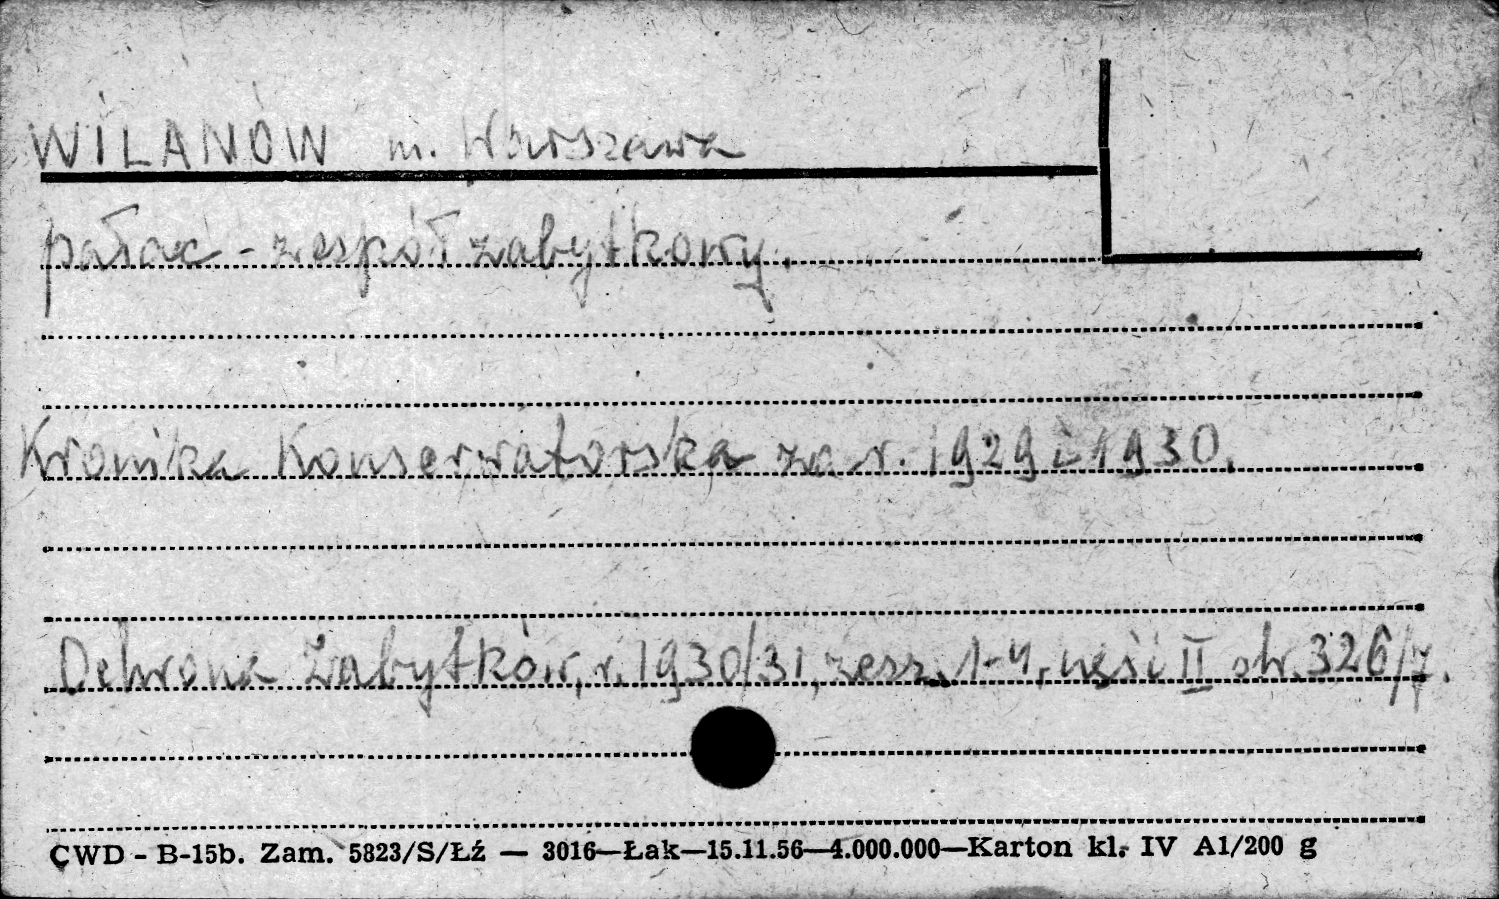 WILANÓW m. Warszawa
pałac - zespół zabytkowy.
Kronika Konserwatorska za r. 1929 i 1930.
Ochrona Zabytków, r. 1930/31, zesz. 1-4, część II str. 326/7.
CWD - B-15b. Zam. 5823/S/Łź — 3016—Łak—15.11.56—4.000.000—Karton kl. IV A1/200 g